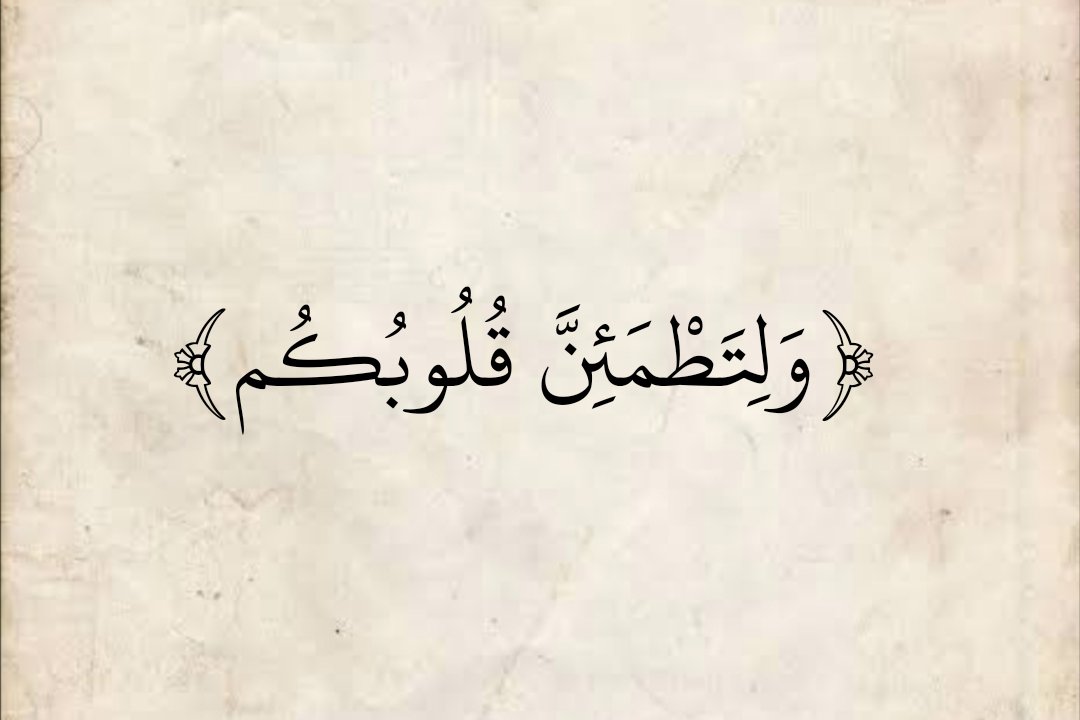 ﴿وَلِتَطْمَئِنَّ قُلُوبُكُم﴾